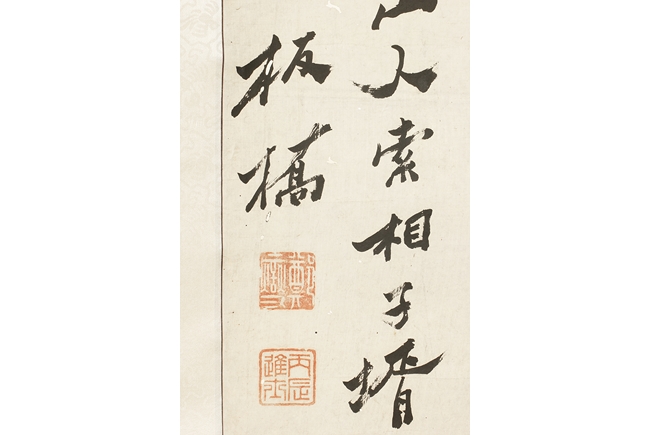 人索相子壻
板橋
丙辰進士